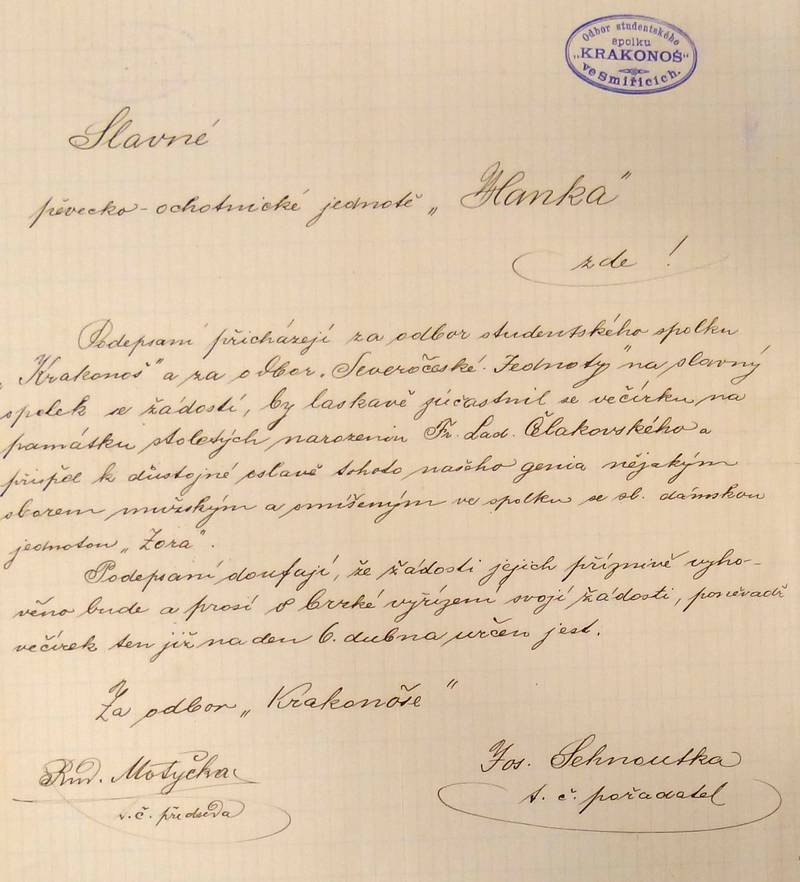 Odbor studentského
spolku
„KRAKONOŠ“
ve Smiřicích.
Slavné
pěvecko-ochotnické jednotě „Hanka“
zde!
Podepsaní přicházejí za odbor studentského spolku
„Krakonoš“ a za odbor „Severočeské Jednoty“ na slavný
spolek se žádostí, by laskavě zúčastnil se večírku na
památku stoletých narozenin Fr. Lad. Čelakovského a
přispěl k důstojné oslavě tohoto našeho genia nějakým
sborem mužským a smíšeným ve spolku se sl. dámskou
jednotou „Zora“.
Podepsaní doufají, že žádosti jejich příznivě vyho-
věno bude a prosí o brzké vyřízení svojí žádosti, poněvadž
večírek ten již na den 6. dubna určen jest.
Za odbor „Krakonoše“
Rud. Motyčka
t. č. předseda
Jos. Sehnoutka
t. č. pořadatel